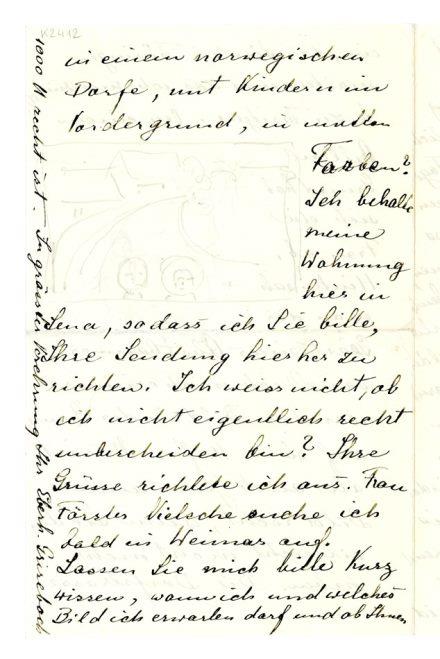 K2412
in einem norwegischen
Dorfe, mit Kindern im
Vordergrund, in matten
Farben?
Ich behalte
meine
Wohnung
hier in
Jena, sodass ich Sie bitte,
Ihre Sendung hierher zu
richten. Ich weiss nicht, ob
ich nicht eigentlich recht
unbescheiden bin? Ihre
Grüsse richtete ich aus. Frau
Förster Nietzsche suche ich
bald in Weimar auf.
Lassen Sie mich bitte Kurz
wissen, wann ich und welches
Bild ich erwarten darf und ob Ihnen
1000 M recht ist. In grösster Verehrung Ihr Eberh. Grisebach